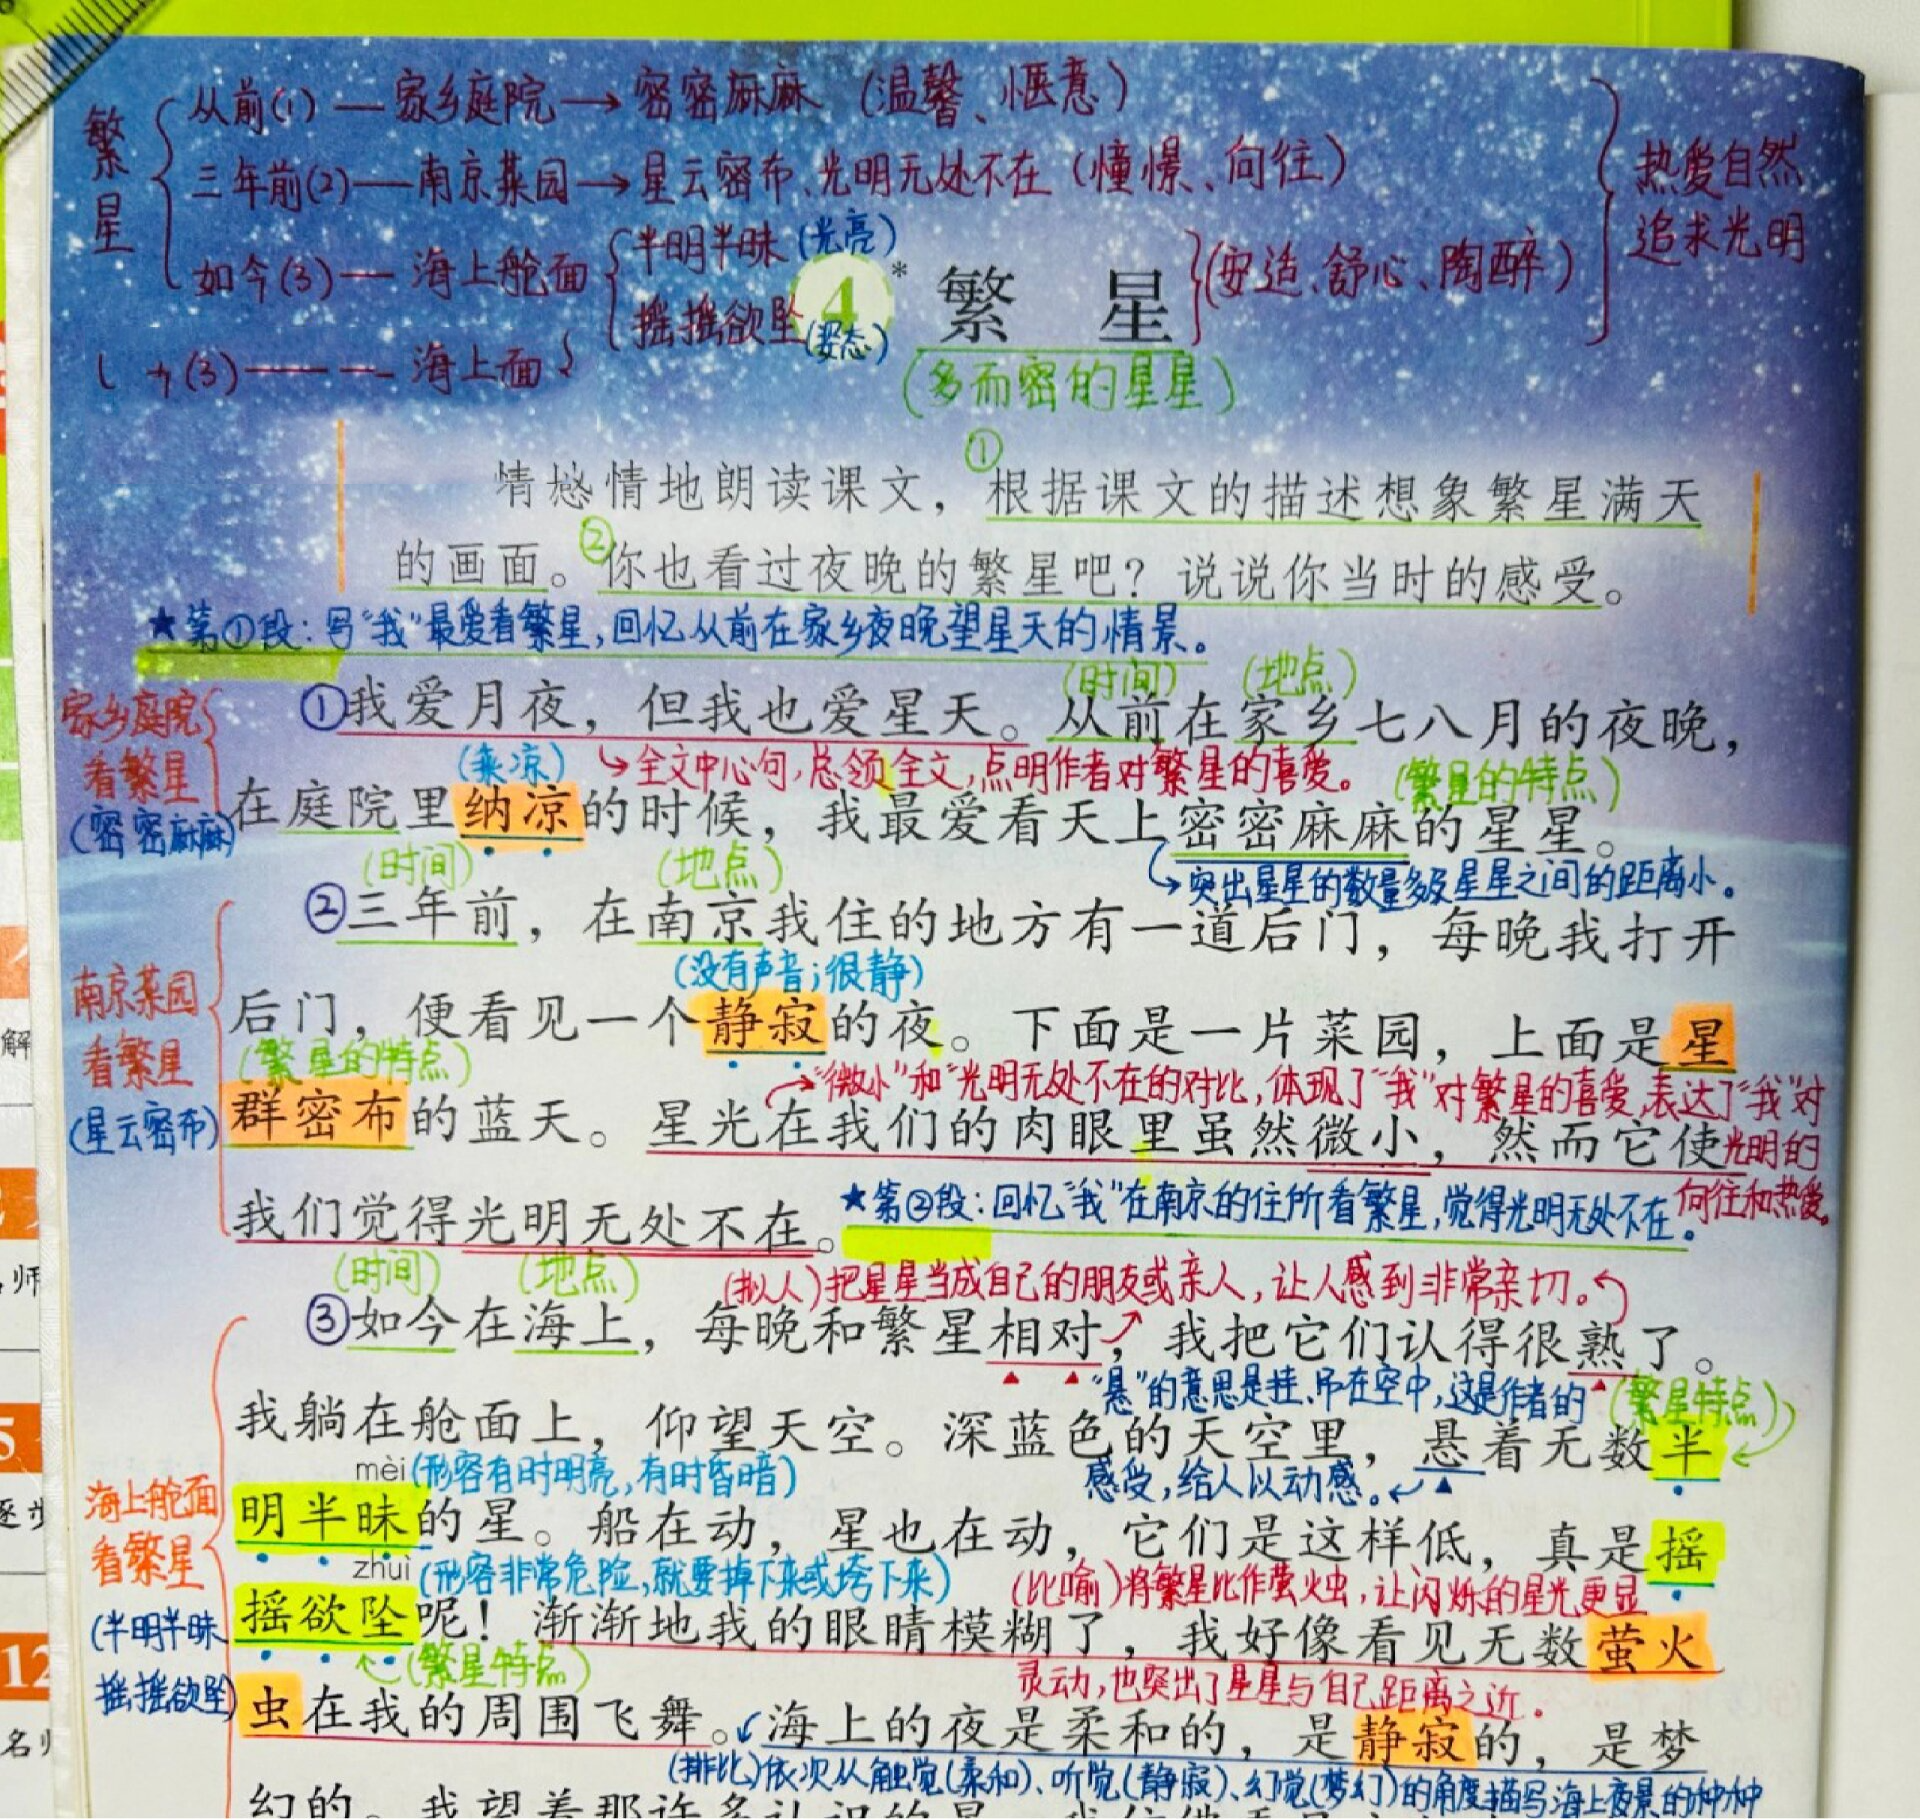 繁星
从前(1)—家乡庭院→密密麻麻（温馨、惬意）
三年前(2)—南京菜园→星云密布、光明无处不在（憧憬、向往）
如今(3)—海上舱面
半明半昧(光亮)
摇摇欲坠(姿态)
(安适、舒心、陶醉)
热爱自然
追求光明
(3)———海上面
4 * 繁 星
(多而密的星星)
①
情感情地朗读课文，根据课文的描述想象繁星满天
的画面。②你也看过夜晚的繁星吧？说说你当时的感受。
★第①段：写“我”最爱看繁星，回忆从前在家乡夜晚望星天的情景。
(时间) (地点)
家乡庭院
看繁星
(密密麻麻)
①我爱月夜，但我也爱星天。从前在家乡七八月的夜晚，
(乘凉) ↳全文中心句，总领全文，点明作者对繁星的喜爱。 (繁星的特点)
在庭院里纳凉的时候，我最爱看天上密密麻麻的星星。
(时间) (地点) ↳突出星星的数量多及星星之间的距离小。
②三年前，在南京我住的地方有一道后门，每晚我打开
(没有声音；很静)
南京菜园
看繁星
(星云密布)
后门，便看见一个静寂的夜。下面是一片菜园，上面是星
(繁星的特点) →“微小”和“光明无处不在的对比，体现了“我”对繁星的喜爱，表达了“我”对
群密布的蓝天。星光在我们的肉眼里虽然微小，然而它使
光明的
向往和热爱。
我们觉得光明无处不在。
★第②段：回忆“我”在南京的住所看繁星，觉得光明无处不在。
(时间) (地点) (拟人)把星星当成自己的朋友或亲人，让人感到非常亲切。
③如今在海上，每晚和繁星相对，我把它们认得很熟了。
“悬”的意思是挂、吊在空中，这是作者的 (繁星特点)
我躺在舱面上，仰望天空。深蓝色的天空里，悬着无数半
mèi(形容有时明亮，有时昏暗) 感受，给人以动感。
海上舱面
看繁星
(半明半昧
摇摇欲坠)
明半昧的星。船在动，星也在动，它们是这样低，真是摇
zhuì(形容非常危险，就要掉下来或垮下来) (比喻)将繁星比作萤火虫，让闪烁的星光更显
摇欲坠呢！渐渐地我的眼睛模糊了，我好像看见无数萤火
(繁星特点) 灵动，也突出了星星与自己距离之近。
虫在我的周围飞舞。海上的夜是柔和的，是静寂的，是梦
(排比)依次从触觉(柔和)、听觉(静寂)、幻觉(梦幻)的角度描写海上夜景的种种
幻的。我望着那许多认识的星
解
师
5
逐步
12
名师